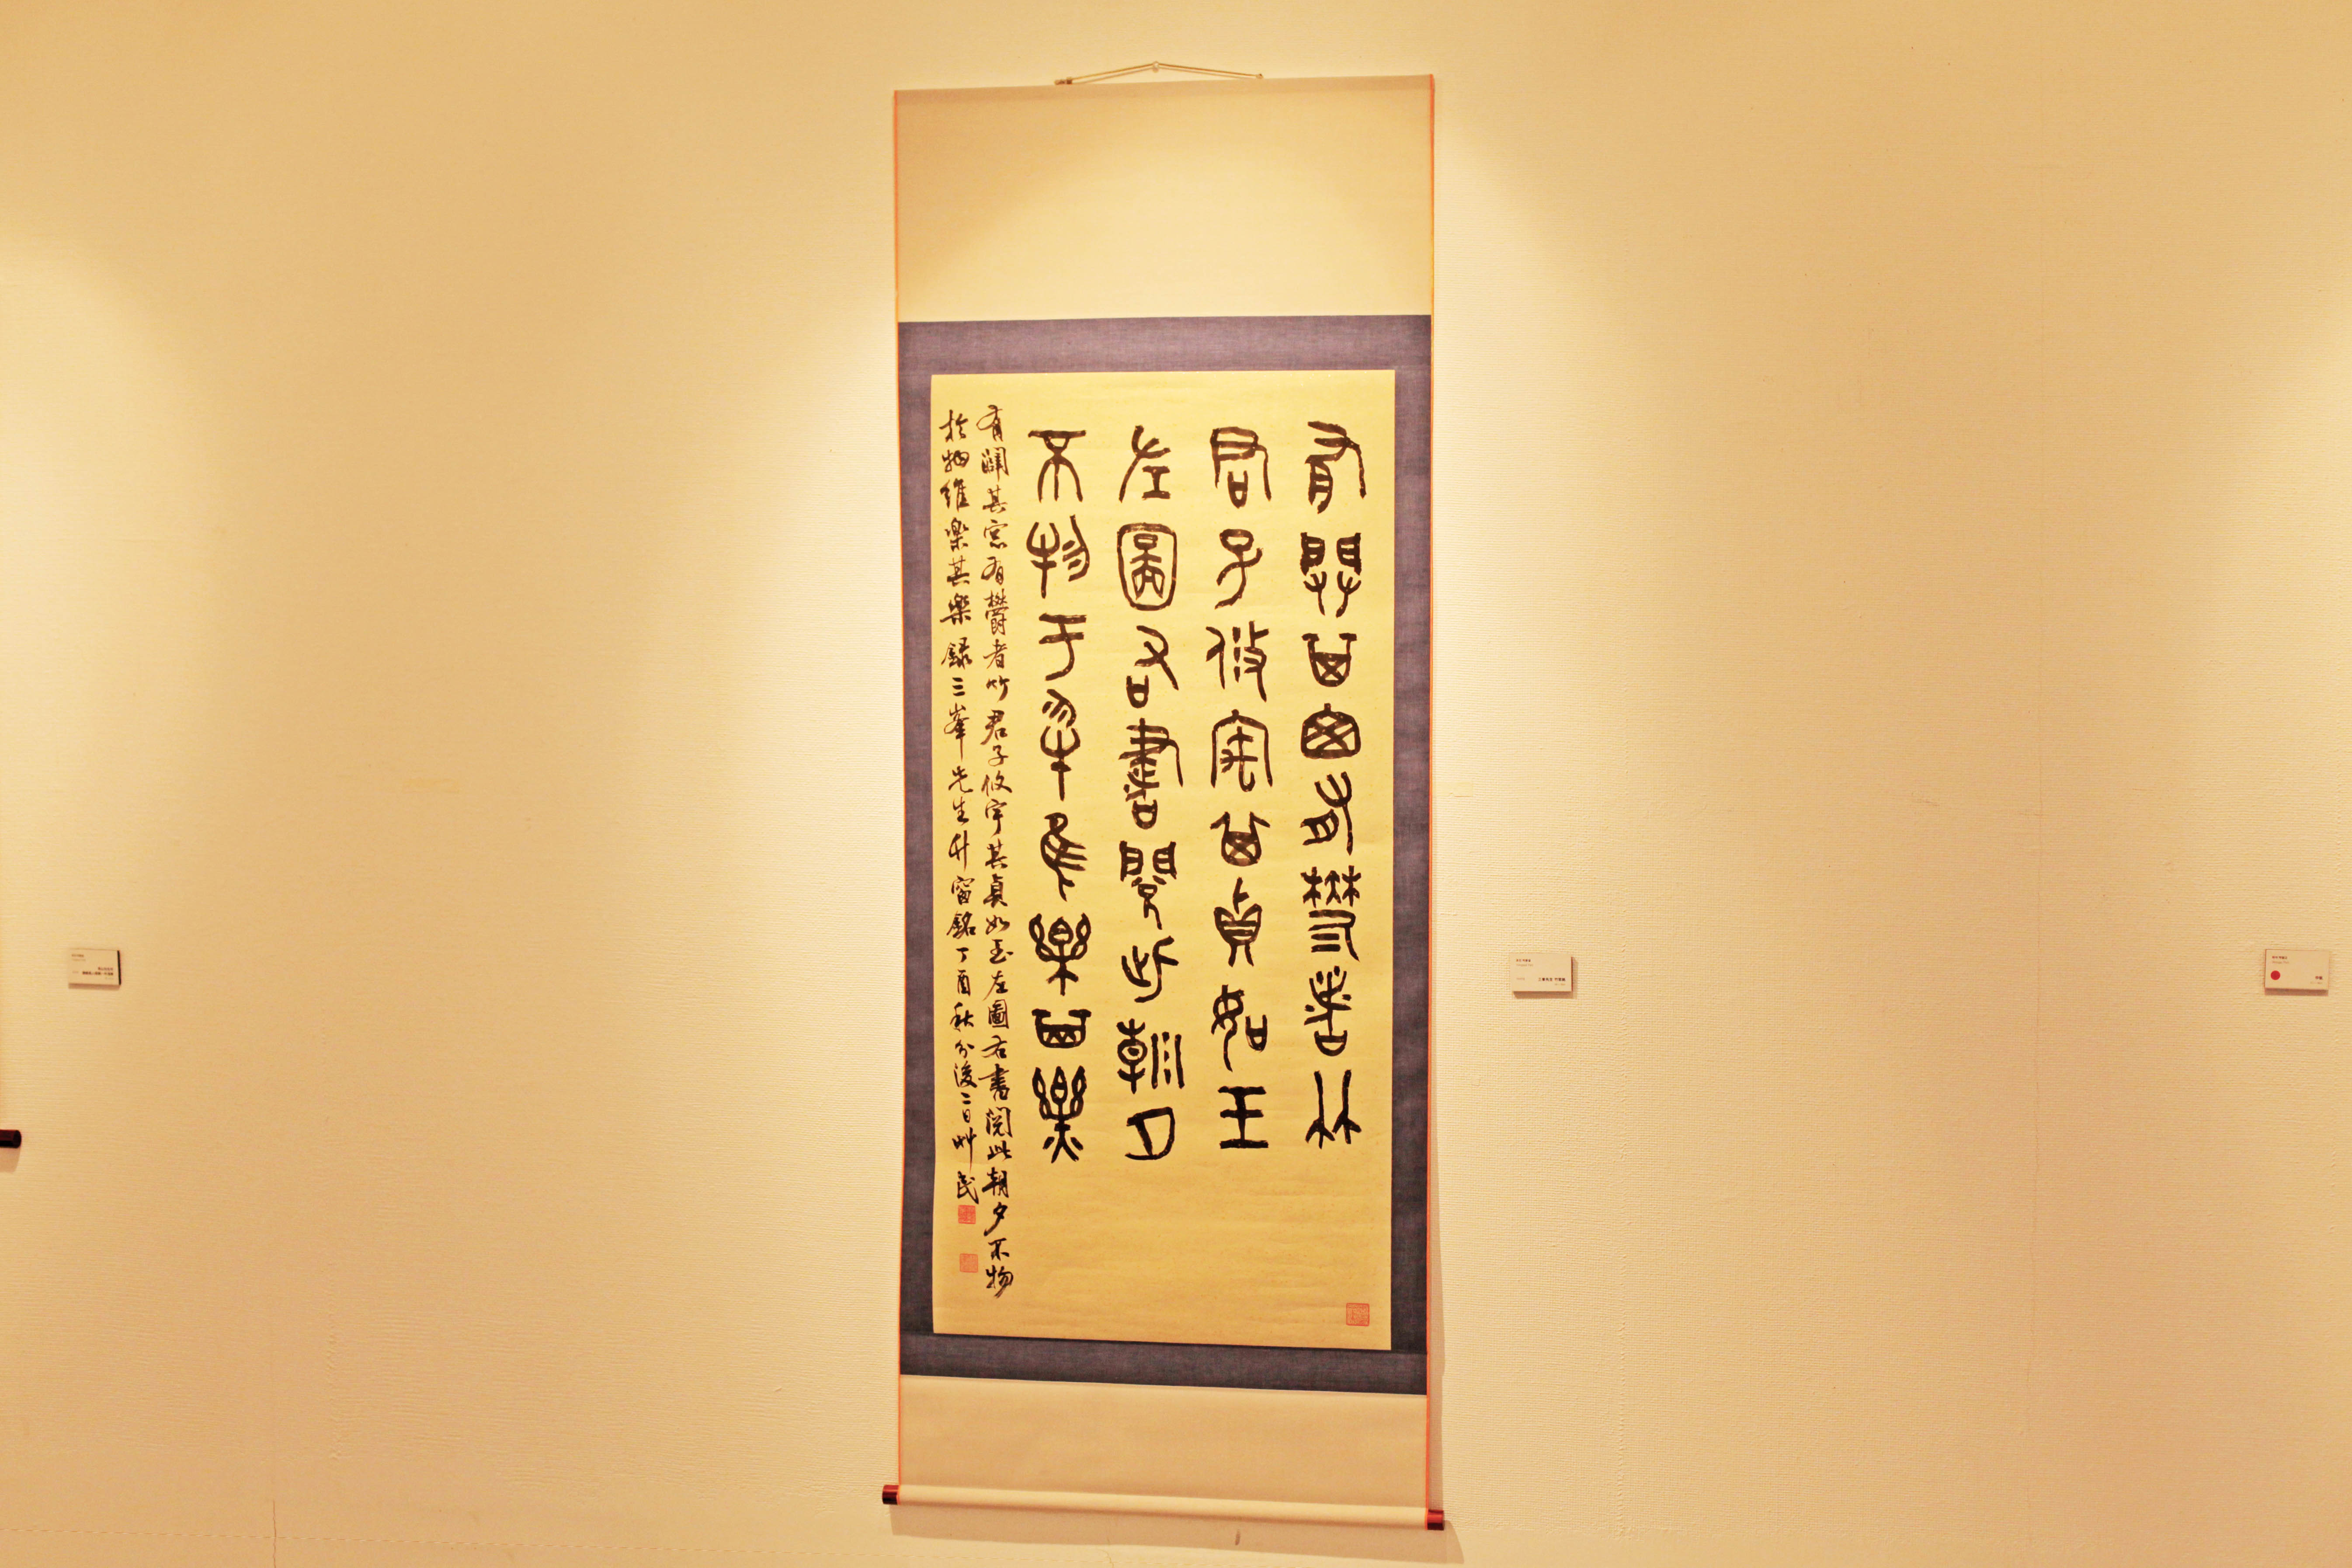 有闢其窗有鬱者竹
君子攸宇其貞如玉
左圖右書閱此朝夕
不物于物維樂其樂
有闢其窓有鬱者竹君子攸宇其貞如玉左圖右書閱此朝夕不物
於物維樂其樂 録三峯先生竹窗銘丁酉秋分後二日艸民